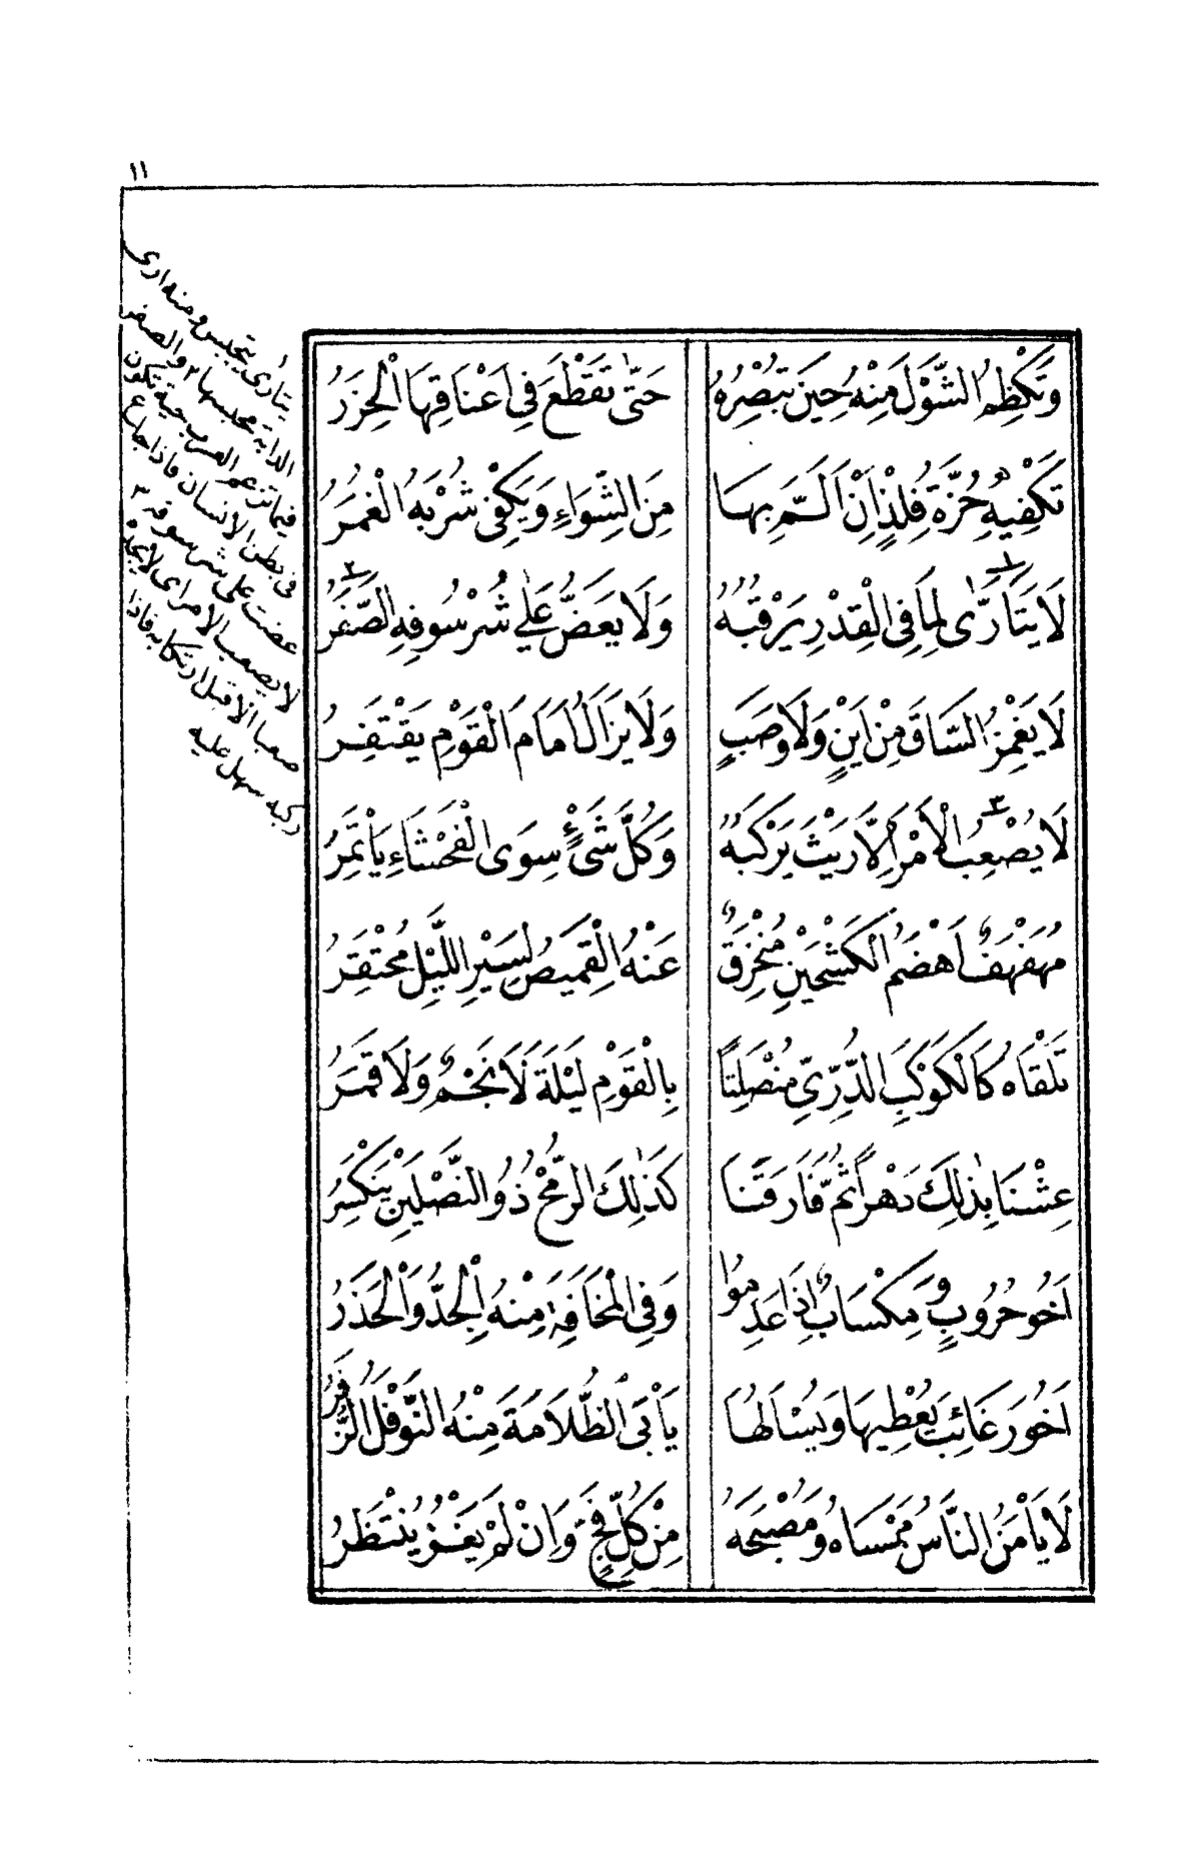 ١١
وَتَكْظِمُ الشَّوْلَ مِنْهُ حِينَ تُبْصِرُهُ حَتّٰى تَقَطَّعَ فِى اَعْنَاقِهَا الْجِرَرُ
تَكْفِيهِ حُزَّةُ فِلْذٍ اِنْ اَلَمَّ بِهَا مِنَ الشِّوَاءِ وَيَكْفِى شُرْبَهُ الْغُمَرُ
لَا يَتَاَرّٰى ١ لِمَا فِى الْقِدْرِ يَرْقُبُهُ وَلَا يَعَضُّ عَلٰى شُرْسُوفِهِ الصَّفَرُ ٢
لَا يَغْمِزُ السَّاقَ مِنْ اَيْنٍ وَلَا وَصَبٍ وَلَا يَزَالُ اَمَامَ الْقَوْمِ يَقْتَفِرُ
لَا يُصْعِبُ ٣ الْاَمْرَ اِلَّا رَيْثَ يَرْكَبُهُ وَكُلَّ شَىْءٍ سِوَى الْفَحْشَاءِ يَاْتَمِرُ
مُهَفْهَفٌ اَهْضَمُ الْكَشْحَيْنِ مُنْخَرِقٌ عَنْهُ الْقَمِيصُ لِسَيْرِ اللَّيْلِ مُحْتَقِرُ
تَلْقَاهُ كَالْكَوْكَبِ الدُّرِّىِّ مُنْصَلِتًا بِالْقَوْمِ لَيْلَةَ لَا نَجْمٌ وَلَا قَمَرُ
عِشْنَا بِذٰلِكَ دَهْرًا ثُمَّ فَارَقَنَا كَذٰلِكَ الرُّمْحُ ذُو النَّصْلَيْنِ يَنْكَسِرُ
اَخُو حُرُوبٍ وَمِكْسَابٌ اِذَا عَدِمُوا وَفِى الْمَخَافَةِ مِنْهُ الْجِدُّ وَالْحَذَرُ
اَخُو رَغَائِبَ يُعْطِيهَا وَيُسْاَلُهَا يَاْبَى الظُّلَامَةَ مِنْهُ النَّوْفَلُ الزُّفَرُ
لَا يَاْمَنُ النَّاسُ مُمْسَاهُ وَمُصْبَحَهُ مِنْ كُلِّ فَجٍّ وَاِنْ لَمْ يَغْزُ يُنْتَظَرُ
١ يتأرى يتحبس ومنه ارى
الدابة محبسها ٢ والصفر
فيما تزعم العرب حية تكون
فى بطن الانسان فاذا جاع
عضت على شرسوفه ٣
لا يصعب الامر اى لا يجده
صعبا الا قبل ارتكابه فاذا
ركبه سهل عليه